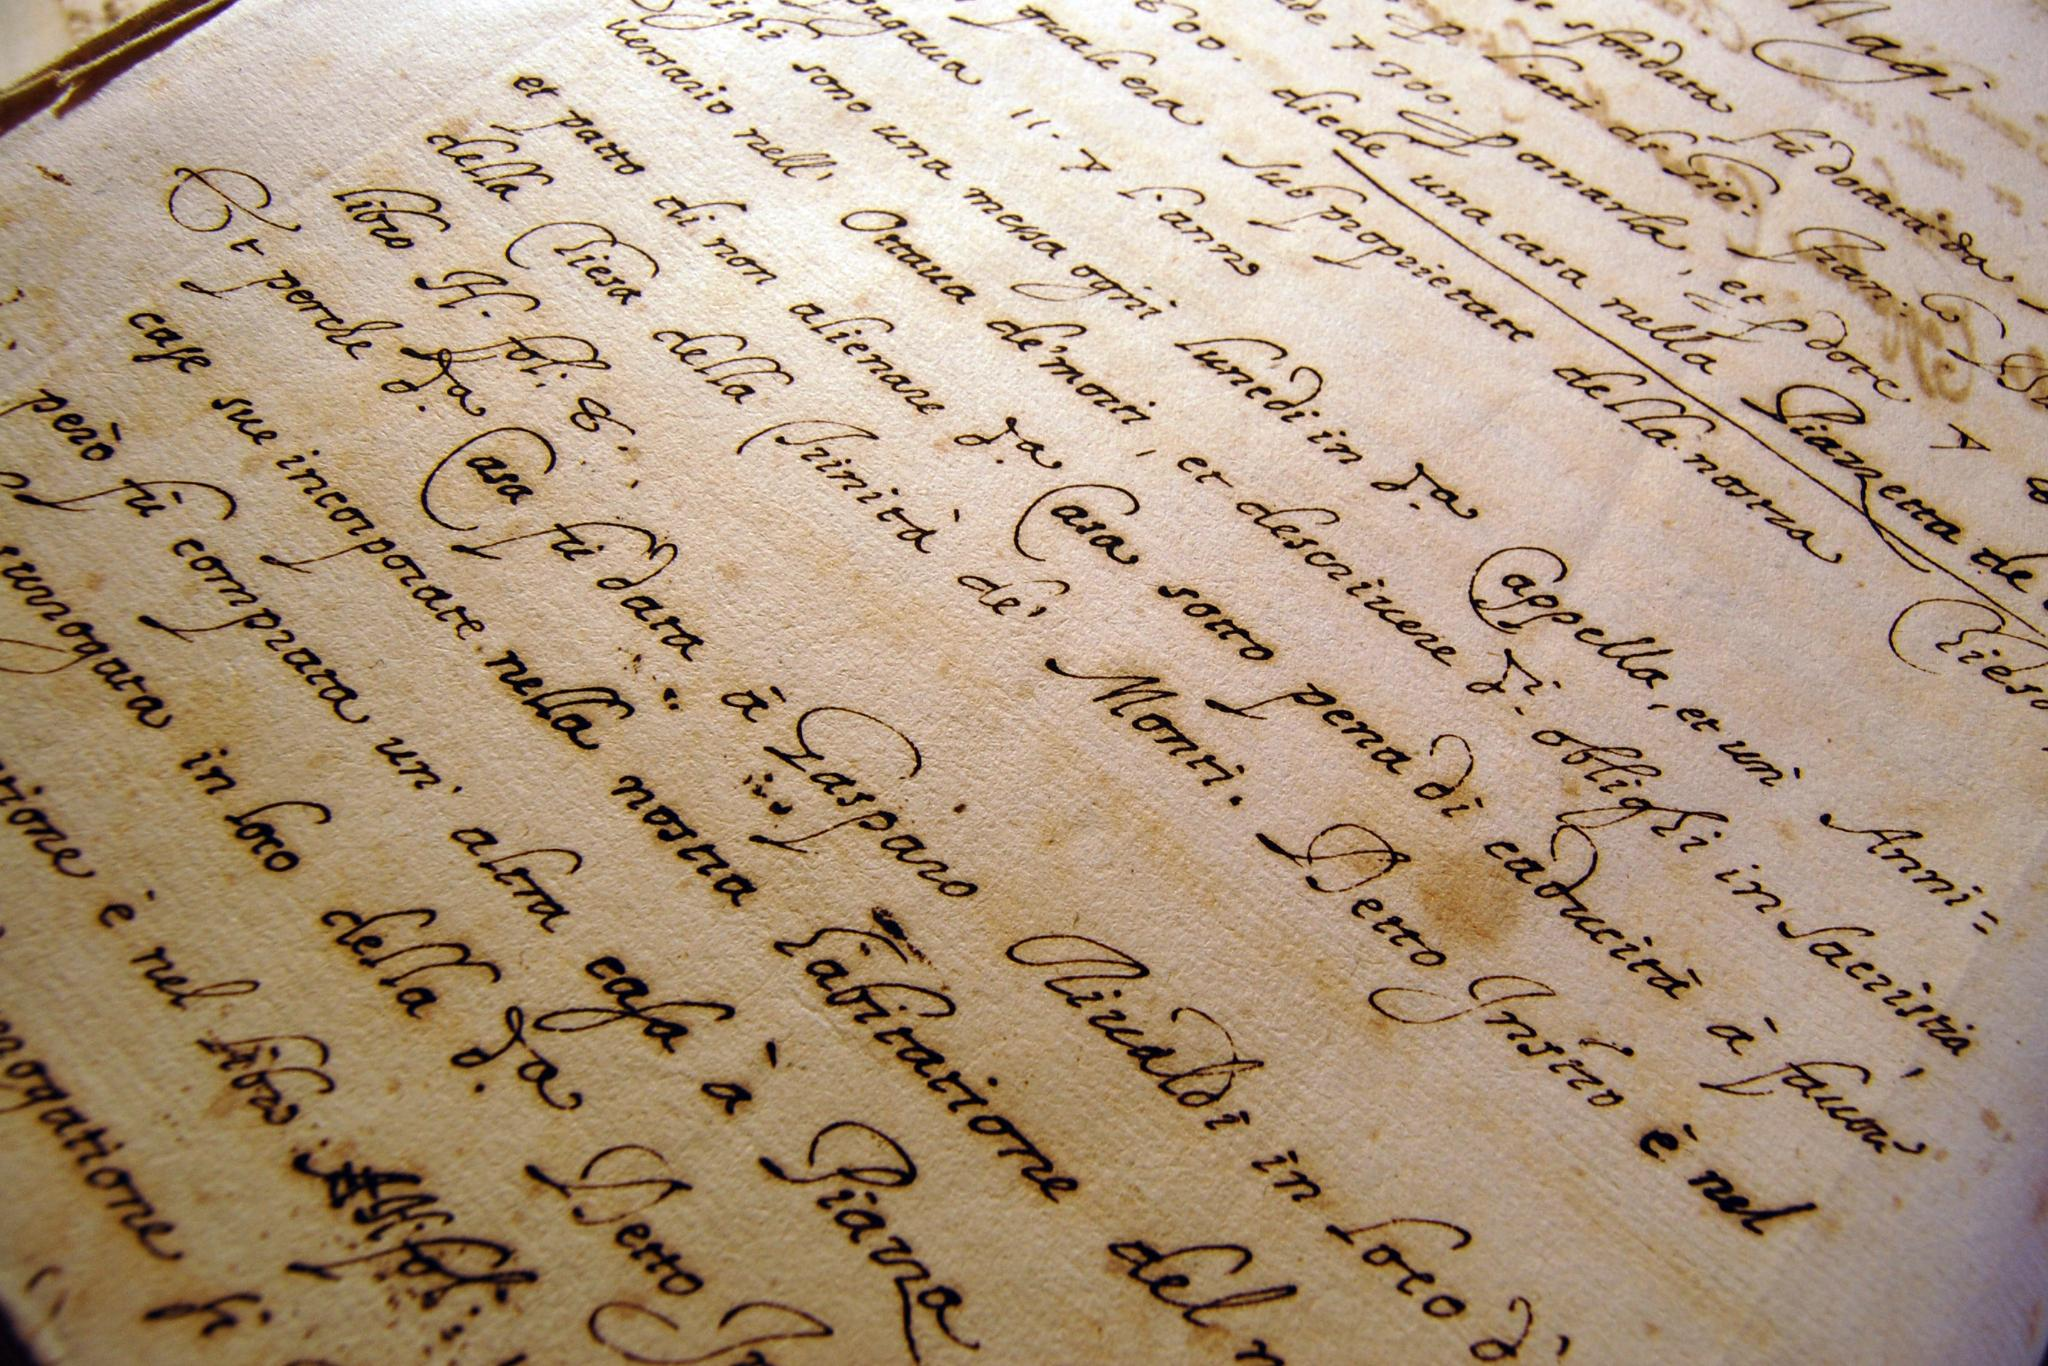 Magi
sfondata fù dotata da
l'atti di Gio: Fran:
300. p ornarla, et p dote
600. diede una casa nella Piazzetta de
quale era sub proprietate della nostra Chiesa
pagaua 11. l'anno
sono una messa ogni lunedi in d.a Cappella, et un' Anni=
uersario nell' Ottaua de' morti, et descriuere d.i oblighi in Sacristia
et patto di non alienare d.a Casa sotto pena di caducità à fauor
della Chiesa della Trinità de' Monti. Detto Instro è nel
libro H. fol. 8.
Et perche d.a Casa fù data à Gasparo Riualdi in loco di
case sue incorporate nella nostra habitatione del
però fù comprata un' altra casa à Piazza
surrogata in loco della d.a Detto In
è nel libro fol.
rogatione di